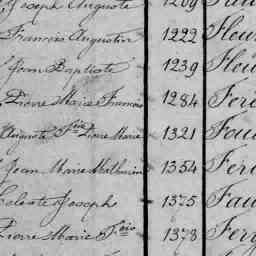 Joseph Auguste 1209
François Augustin 1222 Fleu
Jean Baptiste 1239 Fleu
Pierre Marie François 1284 Fere
Auguste Pierre Marie 1321 Fou
Jean Marie Mathurin 1354 Fer
Celeste Joseph 1375 Fau
Pierre Marie Fçois 1378 Fer